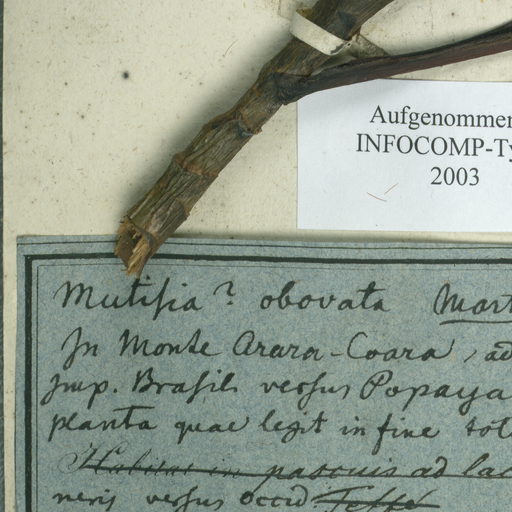 Aufgenommen
INFOCOMP-Ty
2003
Mutisia? obovata Mart
In Monte Arara-Coara, ad
Imp. Brasil. versus Popaya
planta quae legit in fine
Habitat in pascuis ad lac
neris versus occid. Teffé